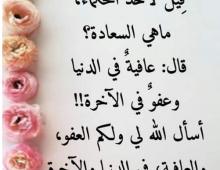 قيل لأحد الحكماء،
ماهي السعادة؟
قال: عافيةٌ في الدنيا
وعفوٌ في الآخرة!!
أسأل الله لي ولكم العفو،
والعافية، في الدنيا والآخرة